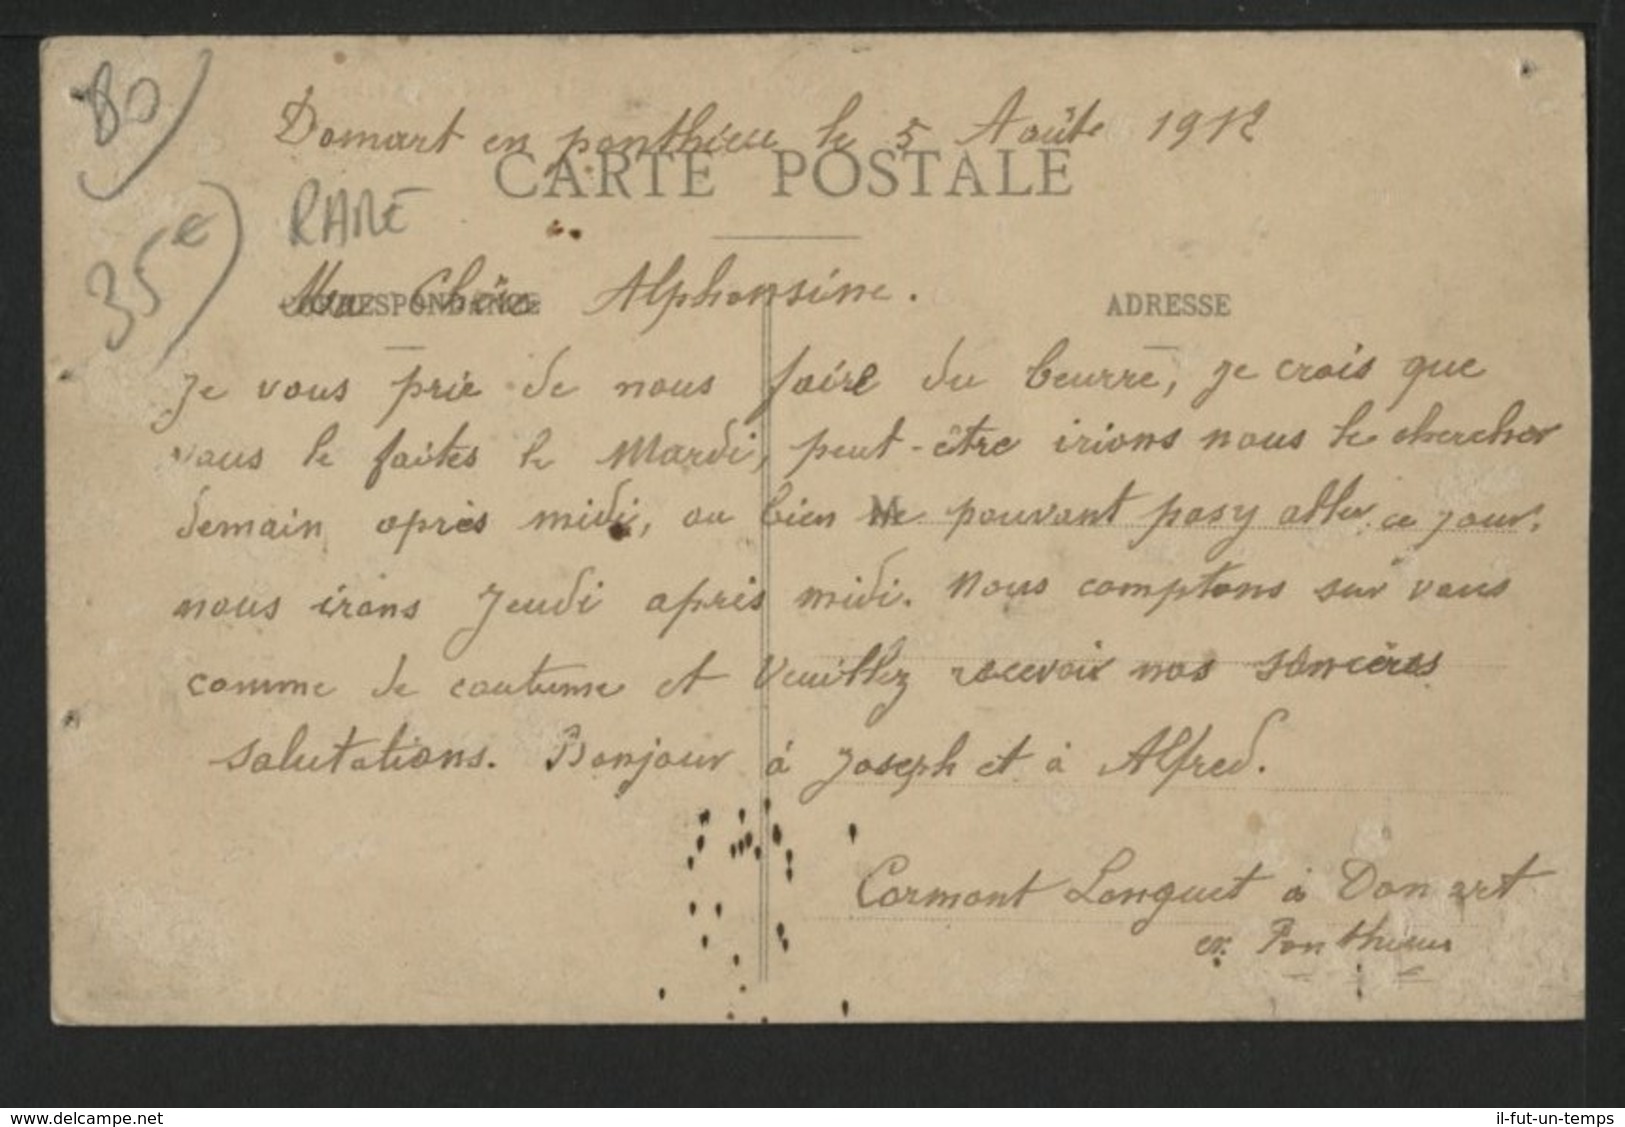 80
Domart en ponthieu le 5 Août 1912
CARTE POSTALE
35 €
RARE
Ma Chère Alphonsine.
CORRESPONDANCE
ADRESSE
Je vous prie de nous faire du beurre, je crois que
vous le faites le Mardi, peut-être irions nous le chercher
demain après midi, ou bien ne pouvant pas y aller ce jour,
M
nous irons Jeudi après midi. Nous comptons sur vous
comme de coutume et Veuillez recevoir nos sincères
salutations. Bonjour à Joseph et à Alfred.
Cormont Longuet à Domart
en Ponthieu
www.delcampe.net
il-fut-un-temps